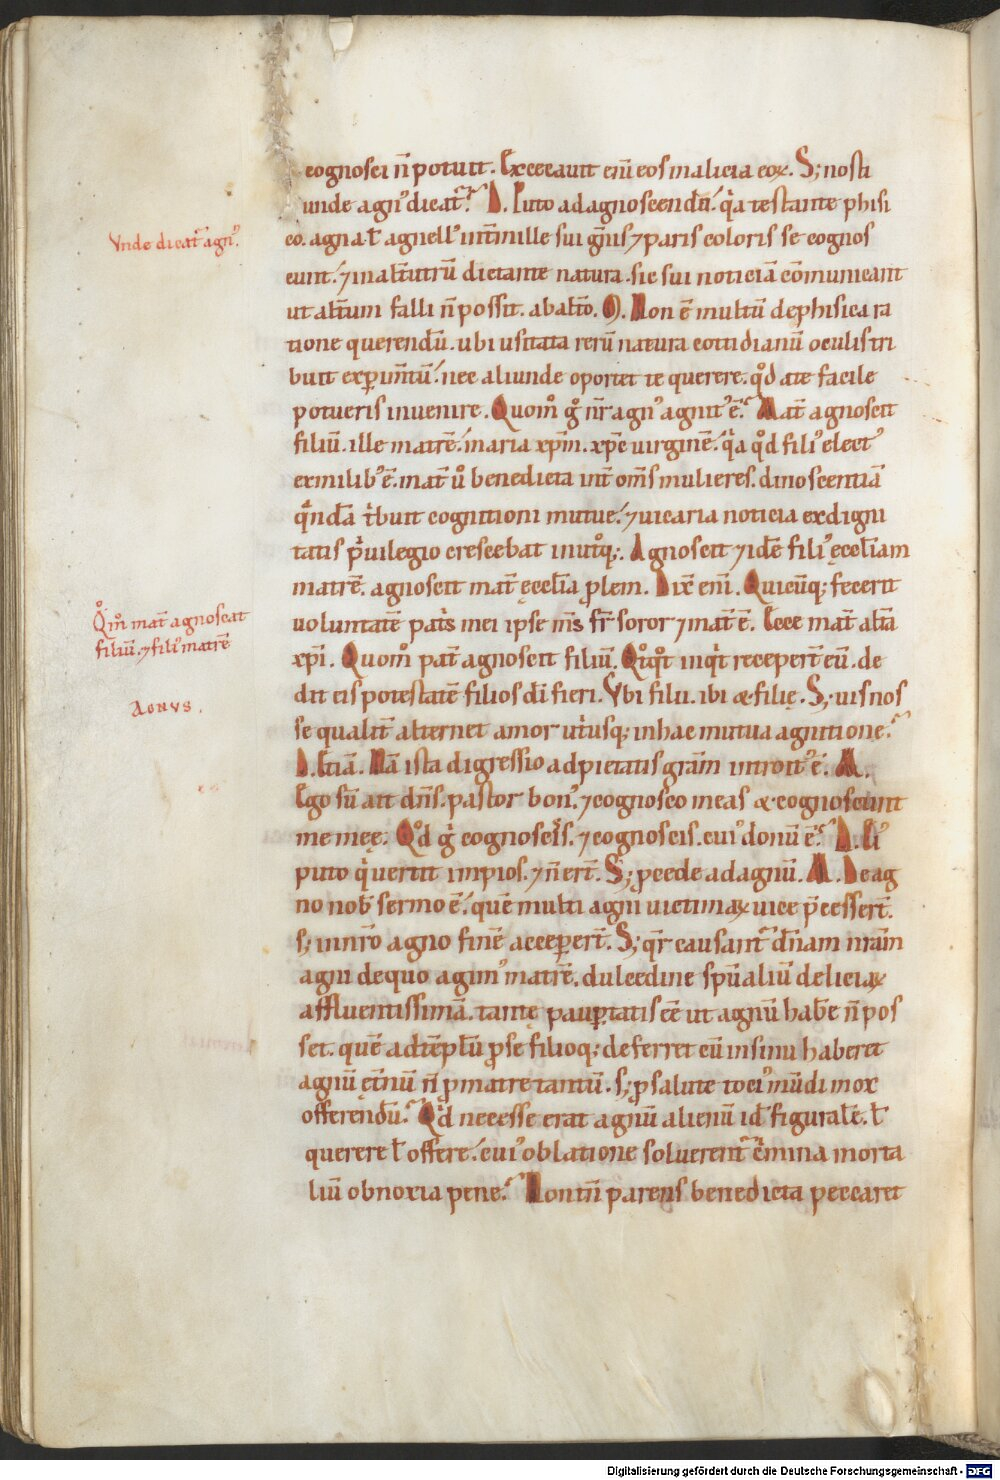 cognosci n̄ potuit. Excecauit eni̅ eos malicia eoꝝ. S; nosti
unde agnꝰ dicat᷑. D. Puto ad agnoscendū. q̇a testante phisi
Vnde dicat᷑ agnꝰ.
co. agna ł agnellꝰ int̄ mille sui gn̄is ⁊ paris coloris se cognos
cunt. ⁊ in alt̄utrū dictante natura. sic sui noticiā cōmunicant
ut alt̄um falli n̄ possit. ab alt̄o. Non ē multū de phisica ra
tione querendū. ubi usitata rerū natura cottidianū oculis tri
buit exꝑim̄tū. nec aliunde oportet te querere. qd̊ a te facile
potueris inuenire. Quom̊ g̊ nr̄ agnꝰ agnitꝰ ē. Mat̄ agnoscit
filiū. ille matrē. maria xp̄m. xp̄c uirginē. q̇a qd̊ filiꝰ elect᾽
ex milibꝰ ē. mat̄ ů benedicta int̄ om̄s mulieres. dinoscentiā
q̇ndā t̓buit cognitioni mutuę. ⁊ uicaria noticia ex digni
tatis p̓uilegio crescebat in utroq;. Agnoscit ⁊ idē filiꝰ ęccl̄iam
matrē. agnoscit mat̄ ęccl̄ia ꝓlem. Dix̄ eni̅. Quicūq; fecerit
Qm̊ mat̄ agnoscat
filiū. ⁊ filiꝰ matrē
uoluntatē pat̓s mei ipse m̄s fr̄ soror ⁊ mat̄ ē. Ecce mat̄ alt̄a
xp̄i. Quom̊ pat̄ agnoscit filiū. Qt̊qt̊ inq̇t receper̄t eū. de
dit eis potestatē filios dī fieri. Vbi filii. ibi & filię. S; uis nos
AGNVS.
se qualit̄ alternet amor ut̓usq; in hac mutua agnitione.
D. Etiā. Nā ista digressio ad pietatis grām introitꝰ ē. M.
Ego sū ait dn̄s. pastor bonꝰ. ⁊ cognosco meas & cognoscunt
me meę. Qd̊ g̊ cognoscis. ⁊ cognosceris. cuiꝰ donū ē. D. Illiꝰ
puto q̇ uertit impios. ⁊ n̄ er̄t. S; ꝓcede ad agnū. M. De ag
no nob̄ sermo ē. quē multi agni uictimaꝝ uice p̄cesser̄t.
s; in nr̄o agno finē acceꝑer̄t. S; qr̄ causant᷑ dn̄am nrām
agni de quo agimꝰ matrē. dulcedine sp̄ualiū deliciaꝝ
affluentissimā. tantę pauꝑtatis eē ut agnū hab̄e n̄ pos
set. quē ad tēplū ꝓ se filioq; deferret cū in sinu haberet
agnū ęt̄nū n̄ ꝓ matre tantū. s; ꝓ salute tociꝰ mūdi mox
offerendū. Qd̓ necesse erat agnū alienū id̄ figuralē. ł
querere ł offerē. cuiꝰ oblatione soluerent᷑ c̓mina morta
liū obnoxia penę. Non tn̄ parens benedicta peccaret
Digitalisierung gefördert durch die Deutsche Forschungsgemeinschaft - DFG